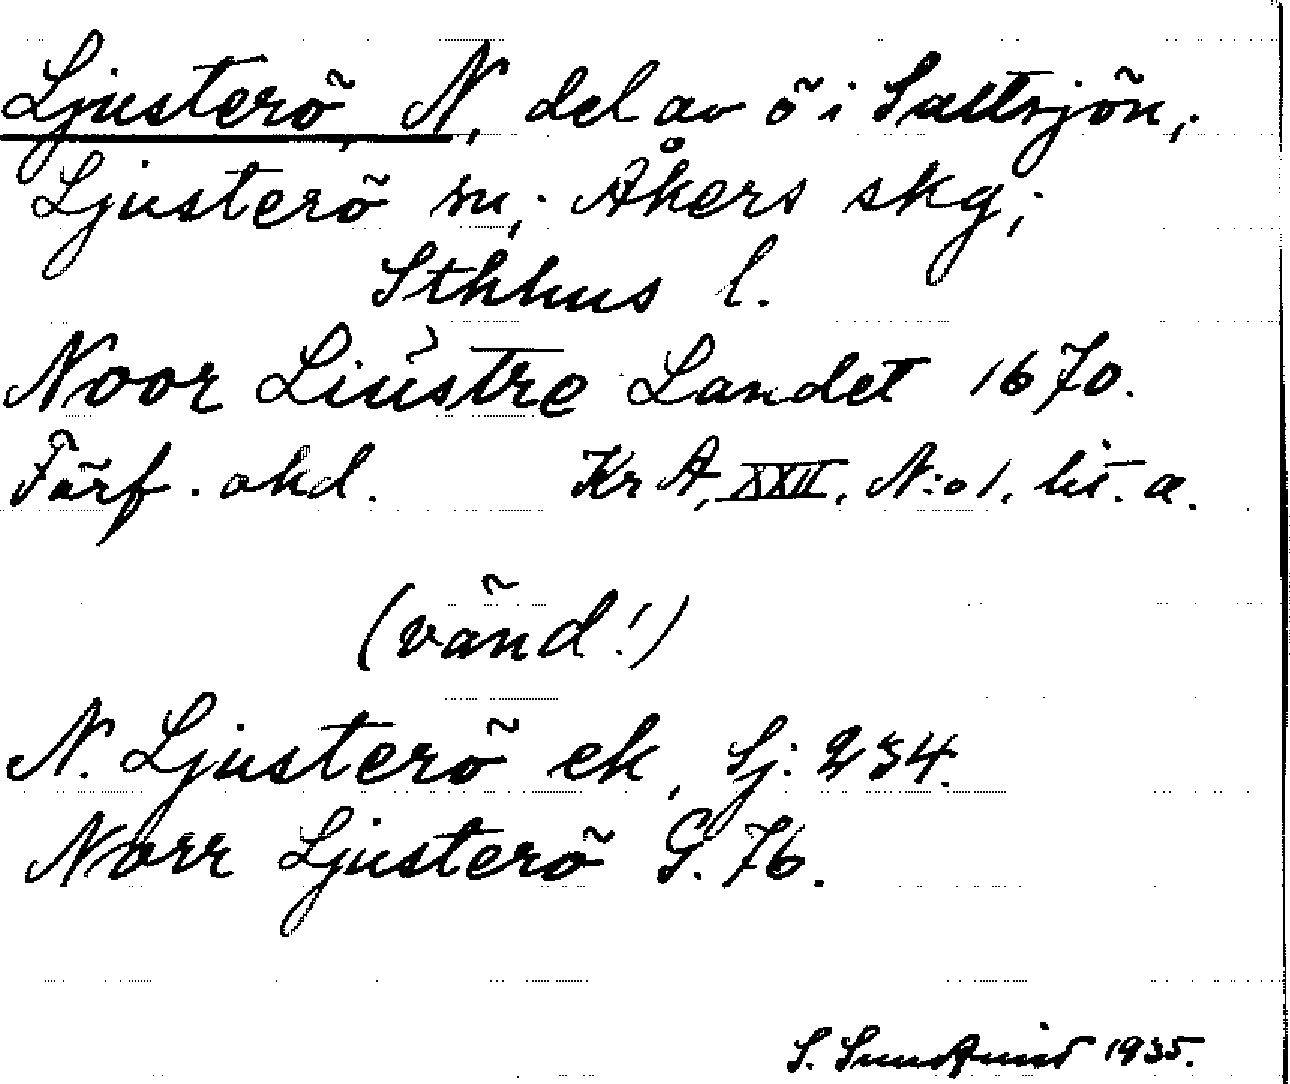 Ljusterö, N., del av ö i Saltsjön,.
Ljusterö sn,. Åkers skg,.
Sthlms l.
Noor Liústre Landet 1670.
Förf. okd. Kr A, XXII, N:o 1, lit. a.
(vänd!)
N. Ljusterö ek, Sj: 234.
Norr Ljusterö G. 76.
S. Sundqvist 1935.